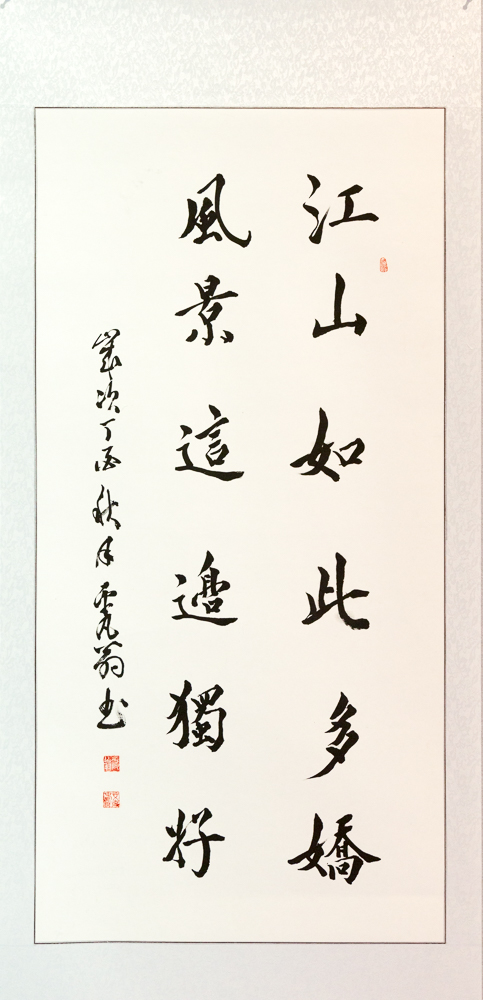 江山如此多嬌
風景這邊獨好
歲次丁酉秋月霓翁书